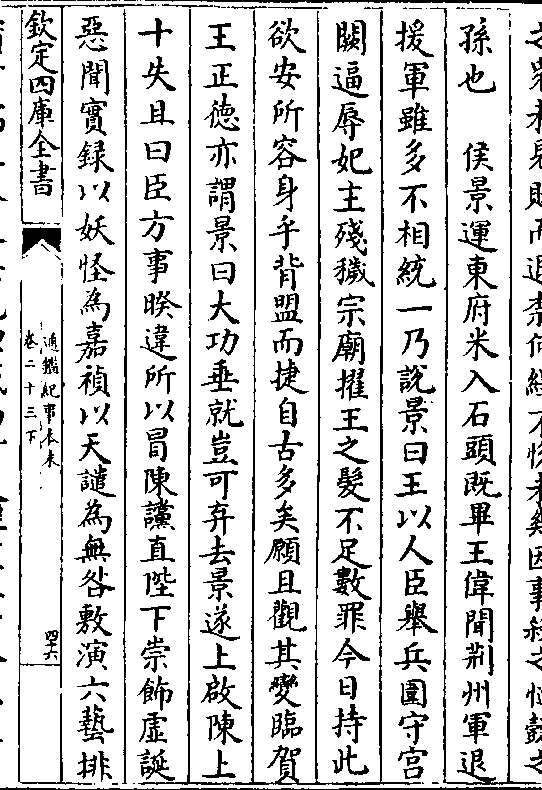 孫也　侯景運東府米入石頭既畢王偉聞荆州軍退
援軍雖多不相統一乃說景曰王以人臣舉兵圍守宫
闕逼辱妃主殘穢宗廟擢王之髮不足數罪今日持此
欲安所容身乎背盟而捷自古多矣願且觀其變臨賀
王正德亦謂景曰大功垂就豈可弃去景遂上啟陳上
十失且曰臣方事暌違所以冒陳讜直陛下崇飾虛誕
惡聞實録以妖怪為嘉禎以天譴為無咎敷演六藝排
欽定四庫全書
通鑑紀事本末
卷二十三下
四十六